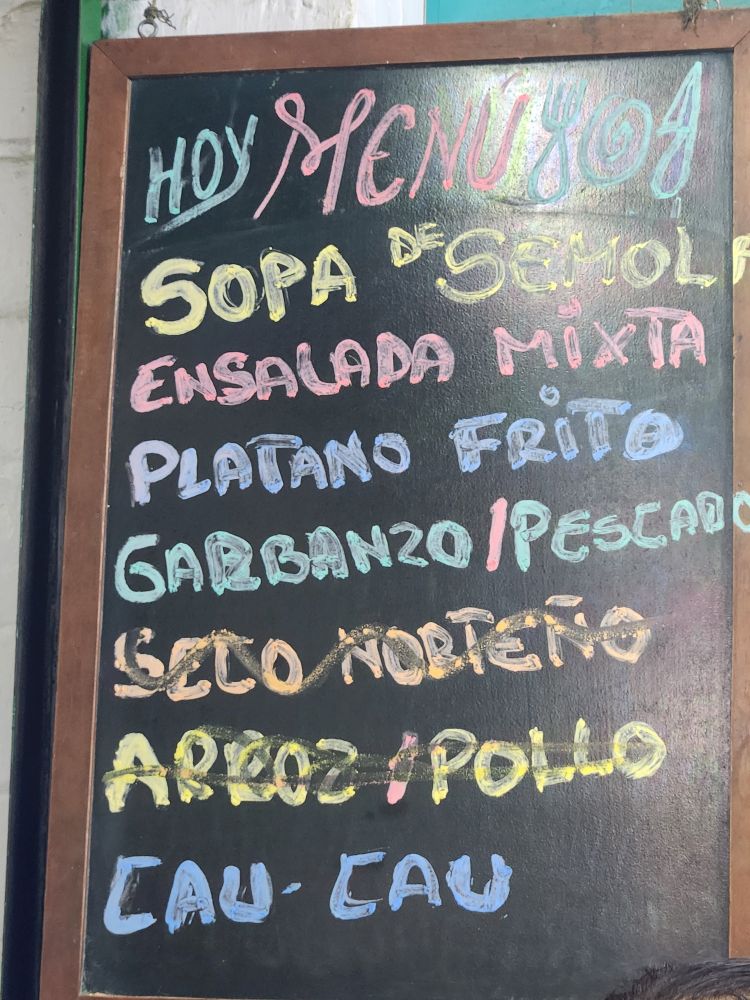 HOY MENÚ
SOPA DE SEMOLA
ENSALADA MIXTA
PLATANO FRITO
GARBANZO/PESCADO
SECO NORTEÑO
ARROZ/POLLO
CAU-CAU